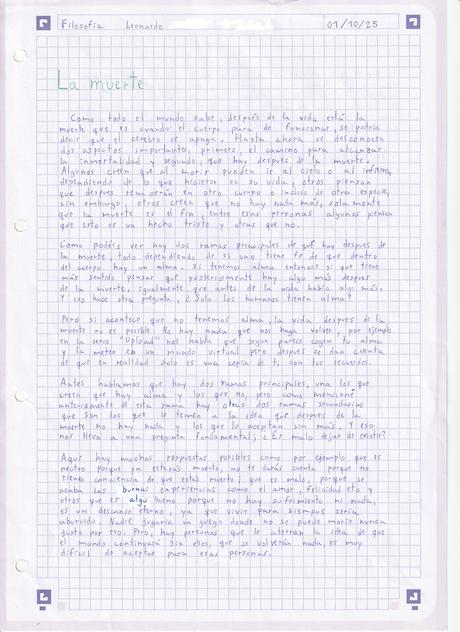 Filosofía Leonardo 01/10/25
La muerte
Como todo el mundo sabe, después de la vida está la
muerte que es cuando el cuerpo para de funcionar, se podría
decir que el cerebro se apaga. Hasta ahora se desconocen
dos aspectos importante, primero, el camino para alcanzar
la inmortalidad y segundo, que hay despues de la muerte.
Algunos creen que al morir pueden ir al cielo o al infierno,
dependiendo de lo que hicieron en su vida, otros piensan
que despues renaceran en otro cuerpo o incluso de otra especie,
sin embargo, otros creen que no hay nada más, solamente
que la muerte es el fin, entre esas personas algunas piensan
que esto es un hecho triste y otras que no.
Como podéis ver hay dos ramas principales de qué hay despues de
la muerte, todo dependiendo de si uno tiene fe de que dentro
del cuerpo hay un alma. Si tenemos alma entonces si que tiene
más sentido pensar que posteriormente hay algo más despues
de la muerte, igualmente que antes de la vida había algo más.
Y eso hace otra pregunta, ¿Solo los humanos tienen alma?
Pero si acontece que no tenemos alma, la vida despues de la
muerte no es posible. No hay nada que nos haga volver, por ejemplo
en la serie "Upload" nos habla que según parece cogen tu alma
y la meten en un mundo virtual pero despues se dan cuenta
de que en realidad solo es una copia de ti con tus recuerdos.
Antes hablamos que hay dos ramas principales, una los que
creen que hay alma y los que no, pero como mencioné
anteriormente de esta rama hay otras dos ramas secundarias
que son los que le temen a la idea que despues de la
muerte no hay nada y los que lo aceptan sin más. Y eso
nos lleva a una pregunta fundamental, ¿Es malo dejar de existir?
Aquí hay muchos respuestas posibles como por ejemplo que es
neutro porque ya estarás muerto, no te darás cuenta porque no
tienes consciencia de que estás muerto, que es malo, porque se
acaba las buenas experiencias como el amor, felicidad etc y
otros que es algo bueno porque no hay sufrimiento ni nada,
es un descanso eterno, ya que vivir para siempre sería
aburrido. Nadie jugaría un juego donde no se puede morir nunca
justo por eso. Pero, hay personas que le aterran la idea de que
el mundo continuará sin ellos, que se volverán nada, es muy
difícil de aceptar para esas personas.